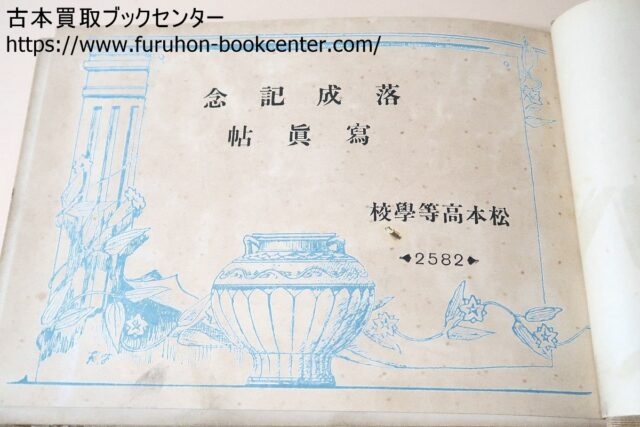 古本買取ブックセンター
https://www.furuhon-bookcenter.com/
念記成落
帖眞寫
校學等高本松
2582